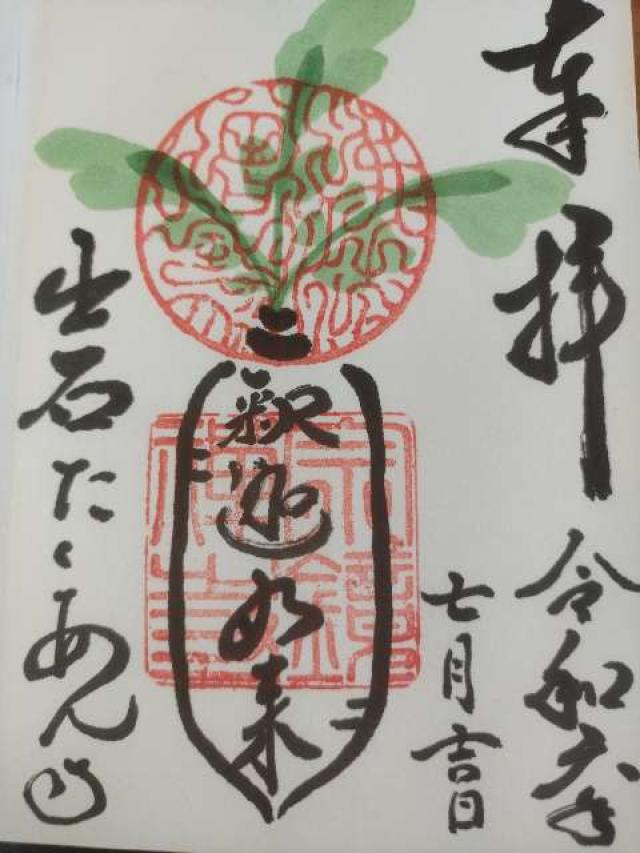 奉拝
令和六年
七月吉日
釈迦如来
出石たくあん寺